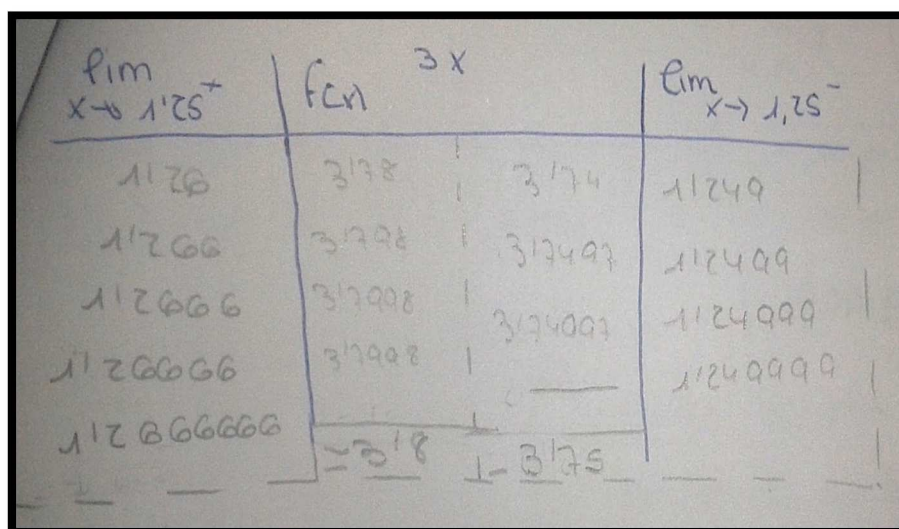 lim f(x) 3x lim
x→1,25⁺ x→1,25⁻
1'26 3'78 3'74 1'249
1'266 3'798 3'7497 1'2499
1'2666 3'7998 3'74997 1'24999
1'26666 3'7998 1'249999
1'2666666
=3'8 3'75